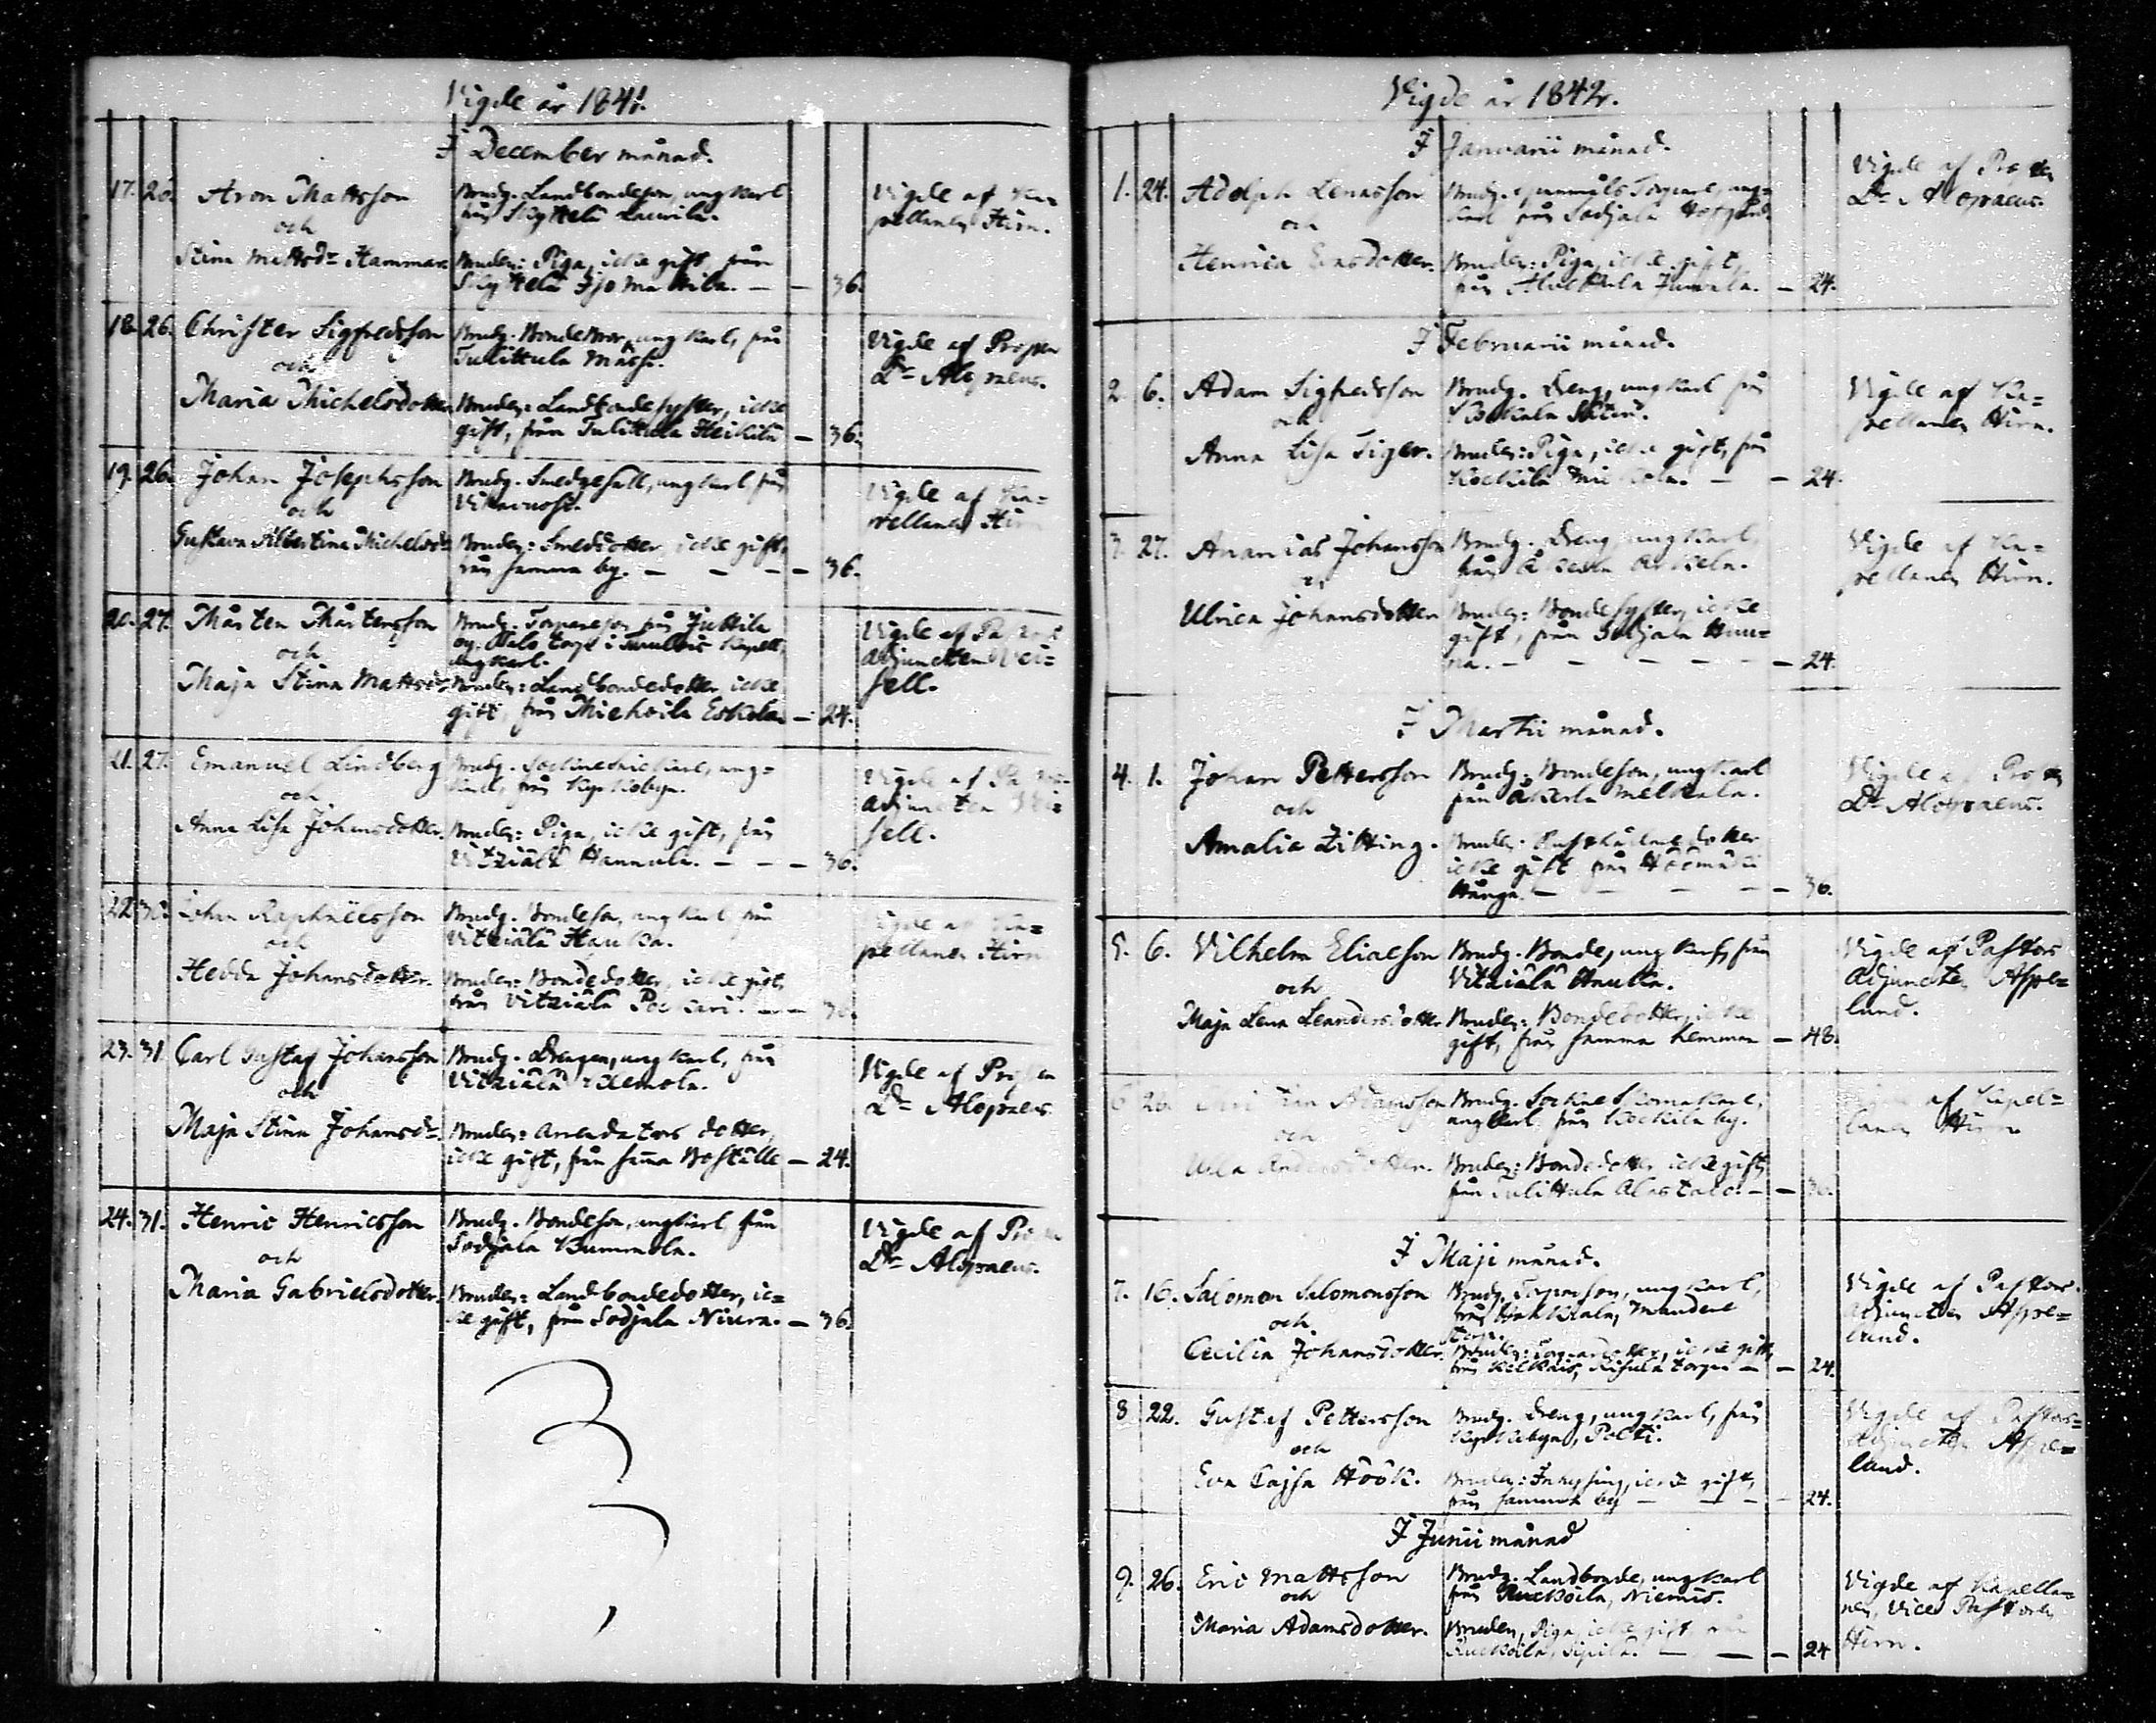 Vigde år 1841.
I December månad.
17. 26. Aron Mattsson
och
Stina Mattsdr Hammar
Brudg. Landbondeson, ungkarl
från Skyttelä Laurila.
Bruden: Piga, icke gift från
Skyttelä — — 36.
Vigde af Ka=
pellanen Hirn.
18. 26. Christer Sigfredsson
och
Maria Michelsdotter
Brudg. Bondebror, ungkarl, från
Tulittula Mässi.
Bruden: Landbondesyster, icke
gift, från Tulittula Heikilä — 36.
Vigde af Prosten
Dr Alopaeus.
19. 26. Johan Josephsson
och
Gustava Albertina Michelsdr
Brudg. Smedgesäll, ungkarl från
Bruden: Smeddotter, icke gift,
från samma by. — — — — 36.
Vigde af Ka=
pellanen Hirn
20. 27. Mårten Mårtensson
och
Maja Stina Mattsdr
Brudg. Torpareson från Juttila
by, Aalo torp i Kapell,
ungkarl.
Bruden: Landbondedotter, icke
gift, från Miehoila Eskola — 24.
Vigde af Pastors
adjuncten Wei=
sell.
21. 27. Emanuel Lindberg
och
Anna Lisa Johansdotter.
Brudg. Sockneskräddare, ung=
karl, från Kyrkobyn.
Bruden: Piga, icke gift, från
Vitziälä Hannula. — — — 36.
Vigde af Pastors
adjuncten Wei=
sell.
22. 30. Johan Raphaelsson
och
Hedda Johansdotter.
Brudg. Bondeson, ungkarl från
Vitziälä Hauka.
Bruden: Bondedotter, icke gift,
från Vitziälä Pockari. — —
Vigde af Ka=
pellanen Hirn
23. 31 Carl Gustaf Johansson
och
Maja Stina Johansdr.
Brudg. Drengen, ungkarl, från
Vitziälä Idemola.
Bruden: Arrendators dotter,
icke gift, från samma Boställe — 24.
Vigde af Prosten
Dr Alopaeus.
24. 31. Henric Henricsson
och
Maria Gabrielsdotter.
Brudg. Bondeson, ungkarl från
Sodjala Bummola.
Bruden: Landbondedotter, ic=
ke gift, från Sodjala Niura. — 36.
Vigde af Prosten
Dr Alopaeus.
Vigde år 1842.
I Januarii månad.
1. 24. Adolph Lenasson
och
Henrica Evasdotter.
Brudg. Torpare, ung=
karl från Sodjala
Bruden: Piga, icke gift,
från — 24.
Vigde af Prosten
Dr Alopaeus.
I Februarii månad.
2. 6. Adam Sigfredsson
och
Anna Lisa Tiger.
Brudg. Dreng, ungkarl från
Bruden: Piga, icke gift, från
Kockila Mickola. — — 24.
Vigde af Ka=
pellanen Hirn.
3. 27. Ananias Johansson
och
Ulrica Johansdotter
Brudg. Dreng, ungkarl,
från Åkerla Arkela.
Bruden: Bondesyster, icke
gift, från Sodjala Hun=
na. — — — — — — 24.
Vigde af Ka=
pellanen Hirn.
I Martii månad.
4. 1. Johan Pettersson
och
Amalia Zitting.
Brudg. Bondeson, ungkarl
från Åkerla Melkkala.
Bruden: Rusthållaredotter
icke gift från Håcmäki
Hånga. — — — — — 36.
Vigde af Prosten
Dr Alopaeus.
5. 6. Vilhelm Eliaeson
och
Maja Lena Leandersdotter
Brudg. Bonde, ungkarl, från
Vitziälä Hauka.
Bruden: Bondedotter, icke
gift, från samma hemman — 48.
Vigde af Pastors
Adjuncten Aspe=
lund.
6 26. Adamsson
och
Ulla Andersdotter.
Brudg. Sockneskomakare,
ungkarl från Kockila by.
Bruden: Bondedotter icke gift,
från Tulittula Alastalo. — —
Vigde af Kapel=
lanen Hirn
I Maji månad.
7. 16. Salomon Salomonsson
och
Cecilia Johansdotter
Brudg. Torpareson, ungkarl,
från Hakkiala, Mandere
torp.
Bruden: Torparedotter, icke gift,
från Kelkais, torp — — 24.
Vigde af Pastors
Adjuncten Aspe=
lund.
8 22. Gustaf Pettersson
och
Eva Cajsa Höök.
Brudg. Dreng, ungkarl, från
Kyrkobyn, Pocti.
Bruden: Inhysing, icke gift,
från samma by — — — — 24.
Vigde af Pastors=
Adjuncten Aspe=
lund.
I Junii månad
9. 26. Eric Mattsson
och
Maria Adamsdotter.
Brudg. Landbonde, ungkarl
från Ruckoila, Niemis.
Bruden, Piga, icke gift från
Ruckoila, Sipilä. — — — 24
Vigde af Kapella=
nen, Vice Pastorn
Hirn.